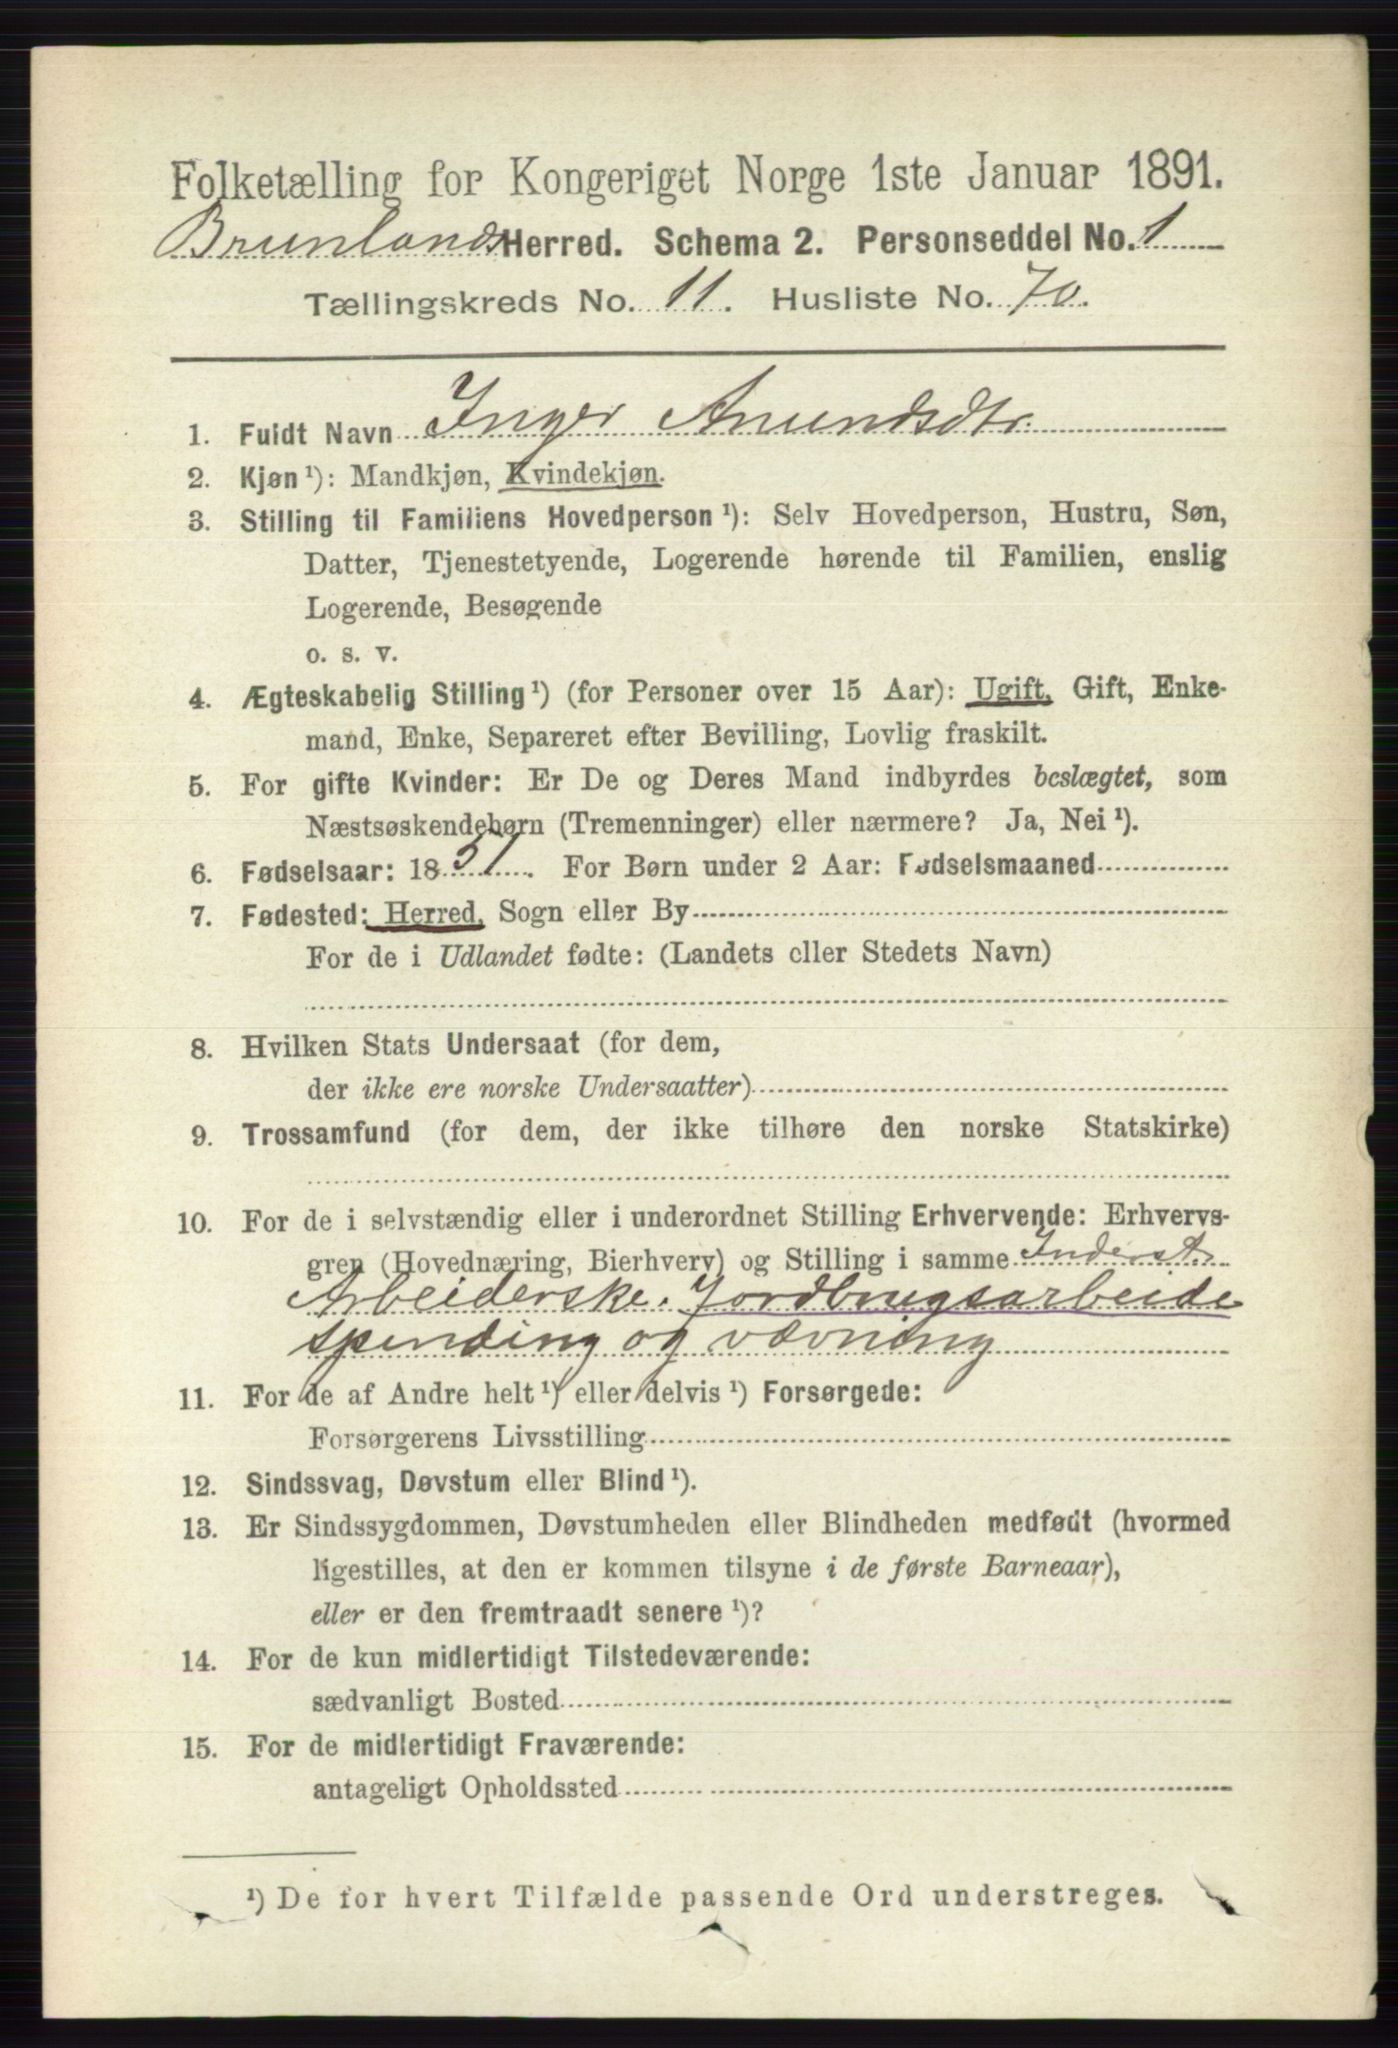 Folketælling for Kongeriget Norge 1ste Januar 1891.
Brunlands Herred. Schema 2. Personseddel No. 1
Tællingskreds No. 11. Husliste No. 70.
1. Fuldt Navn Inger Amundsdtr.
2. Kjøn ¹): Mandkjøn, Kvindekjøn.
3. Stilling til Familiens Hovedperson ¹): Selv Hovedperson, Hustru, Søn,
Datter, Tjenestetyende, Logerende hørende til Familien, enslig
Logerende, Besøgende
o. s. v.
4. Ægteskabelig Stilling ¹) (for Personer over 15 Aar): Ugift, Gift, Enke-
mand, Enke, Separeret efter Bevilling, Lovlig fraskilt.
5. For gifte Kvinder: Er De og Deres Mand indbyrdes beslægtet, som
Næstsøskendebørn (Tremenninger) eller nærmere? Ja, Nei ¹).
6. Fødselsaar: 1851. For Børn under 2 Aar: Fødselsmaaned
7. Fødested: Herred, Sogn eller By
For de i Udlandet fødte: (Landets eller Stedets Navn)
8. Hvilken Stats Undersaat (for dem,
der ikke ere norske Undersaatter)
9. Trossamfund (for dem, der ikke tilhøre den norske Statskirke)
10. For de i selvstændig eller i underordnet Stilling Erhvervende: Erhvervs-
gren (Hovednæring, Bierhverv) og Stilling i samme Inderst.
Arbeiderske. Jordbrugsarbeide
spinding og vævning
11. For de af Andre helt ¹) eller delvis ¹) Forsørgede:
Forsørgerens Livsstilling
12. Sindssvag, Døvstum eller Blind ¹).
13. Er Sindssygdommen, Døvstumheden eller Blindheden medfødt (hvormed
ligestilles, at den er kommen tilsyne i de første Barneaar),
eller er den fremtraadt senere ¹)?
14. For de kun midlertidigt Tilstedeværende:
sædvanligt Bosted
15. For de midlertidigt Fraværende:
antageligt Opholdssted
¹) De for hvert Tilfælde passende Ord understreges.